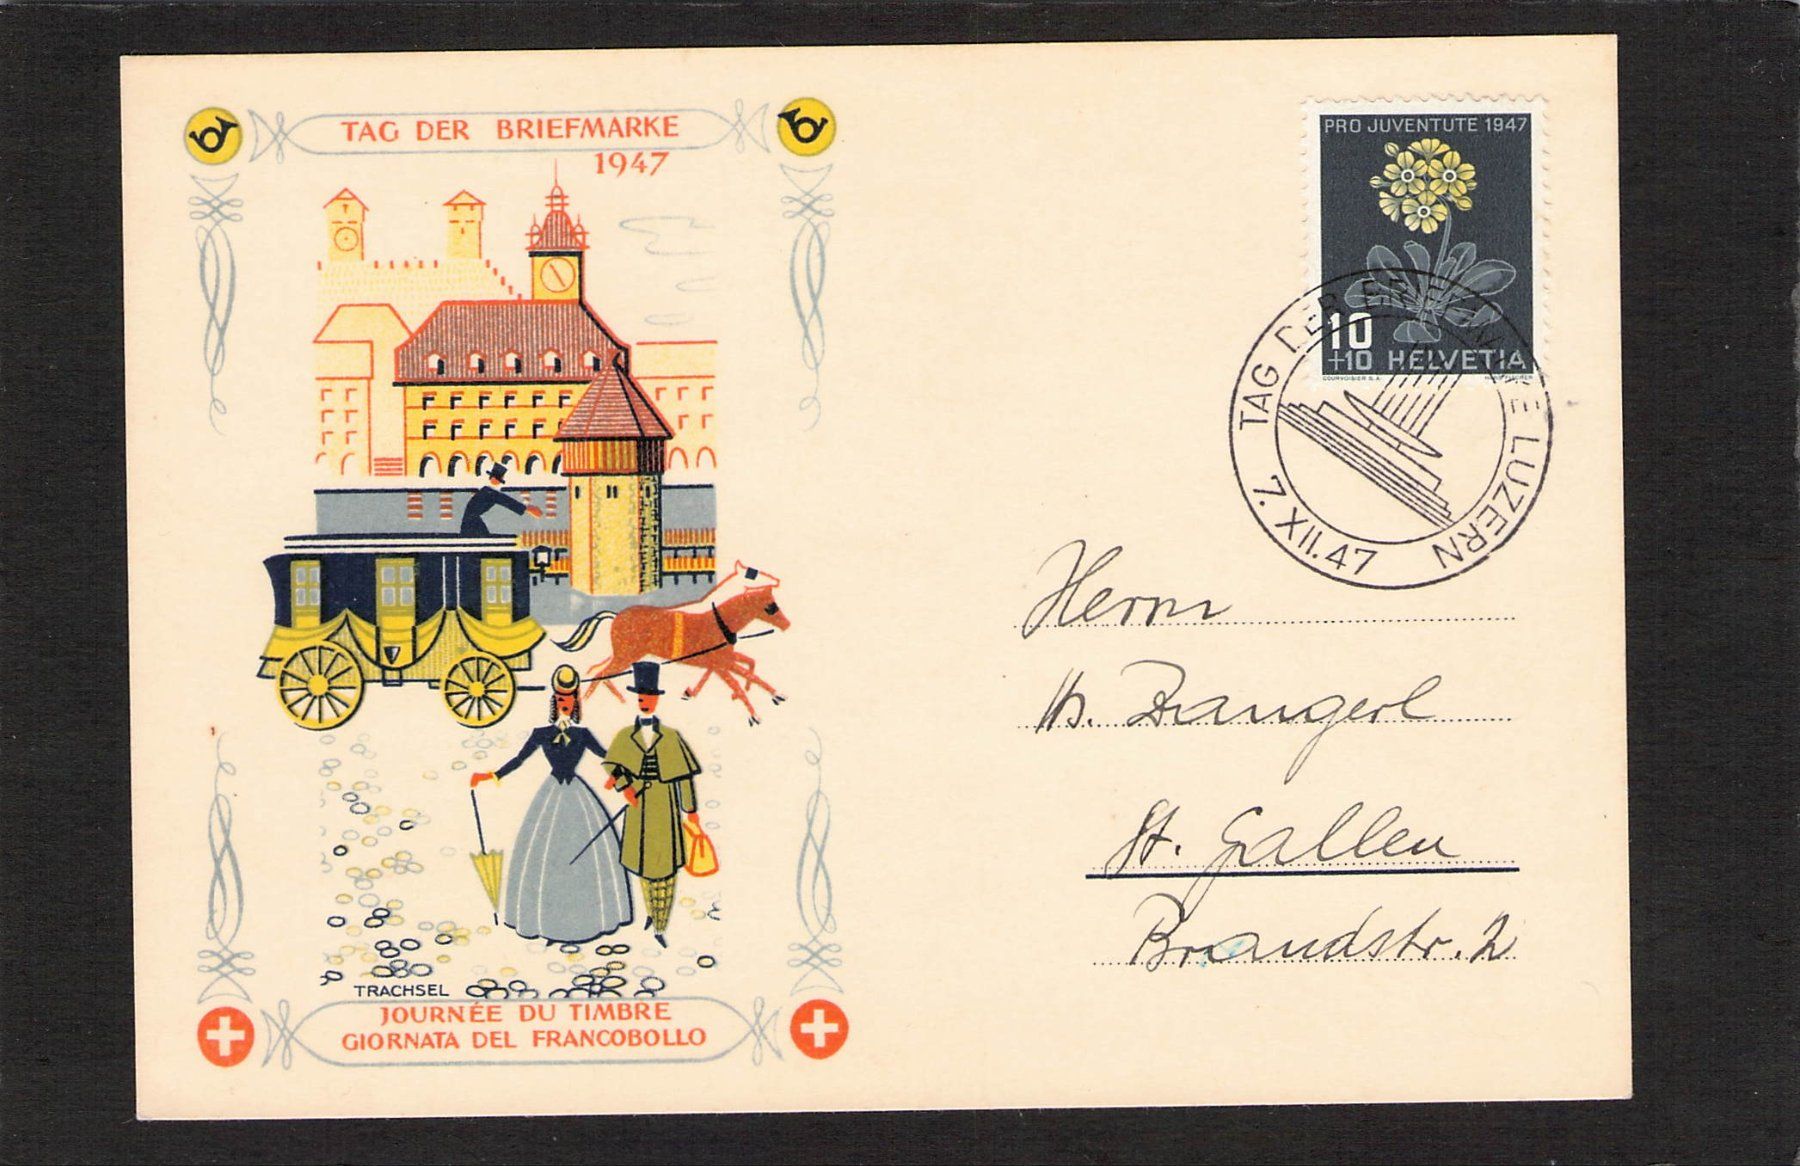 TAG DER BRIEFMARKE
1947
TRACHSEL
JOURNÉE DU TIMBRE
GIORNATA DEL FRANCOBOLLO
PRO JUVENTUTE 1947
10
+10 HELVETIA
COURVOISIER S.A.
TAG DER BRIEFMARKE LUZERN
7. XII. 47
Herrn
Zangerl
St. Gallen
Brandstr. 2